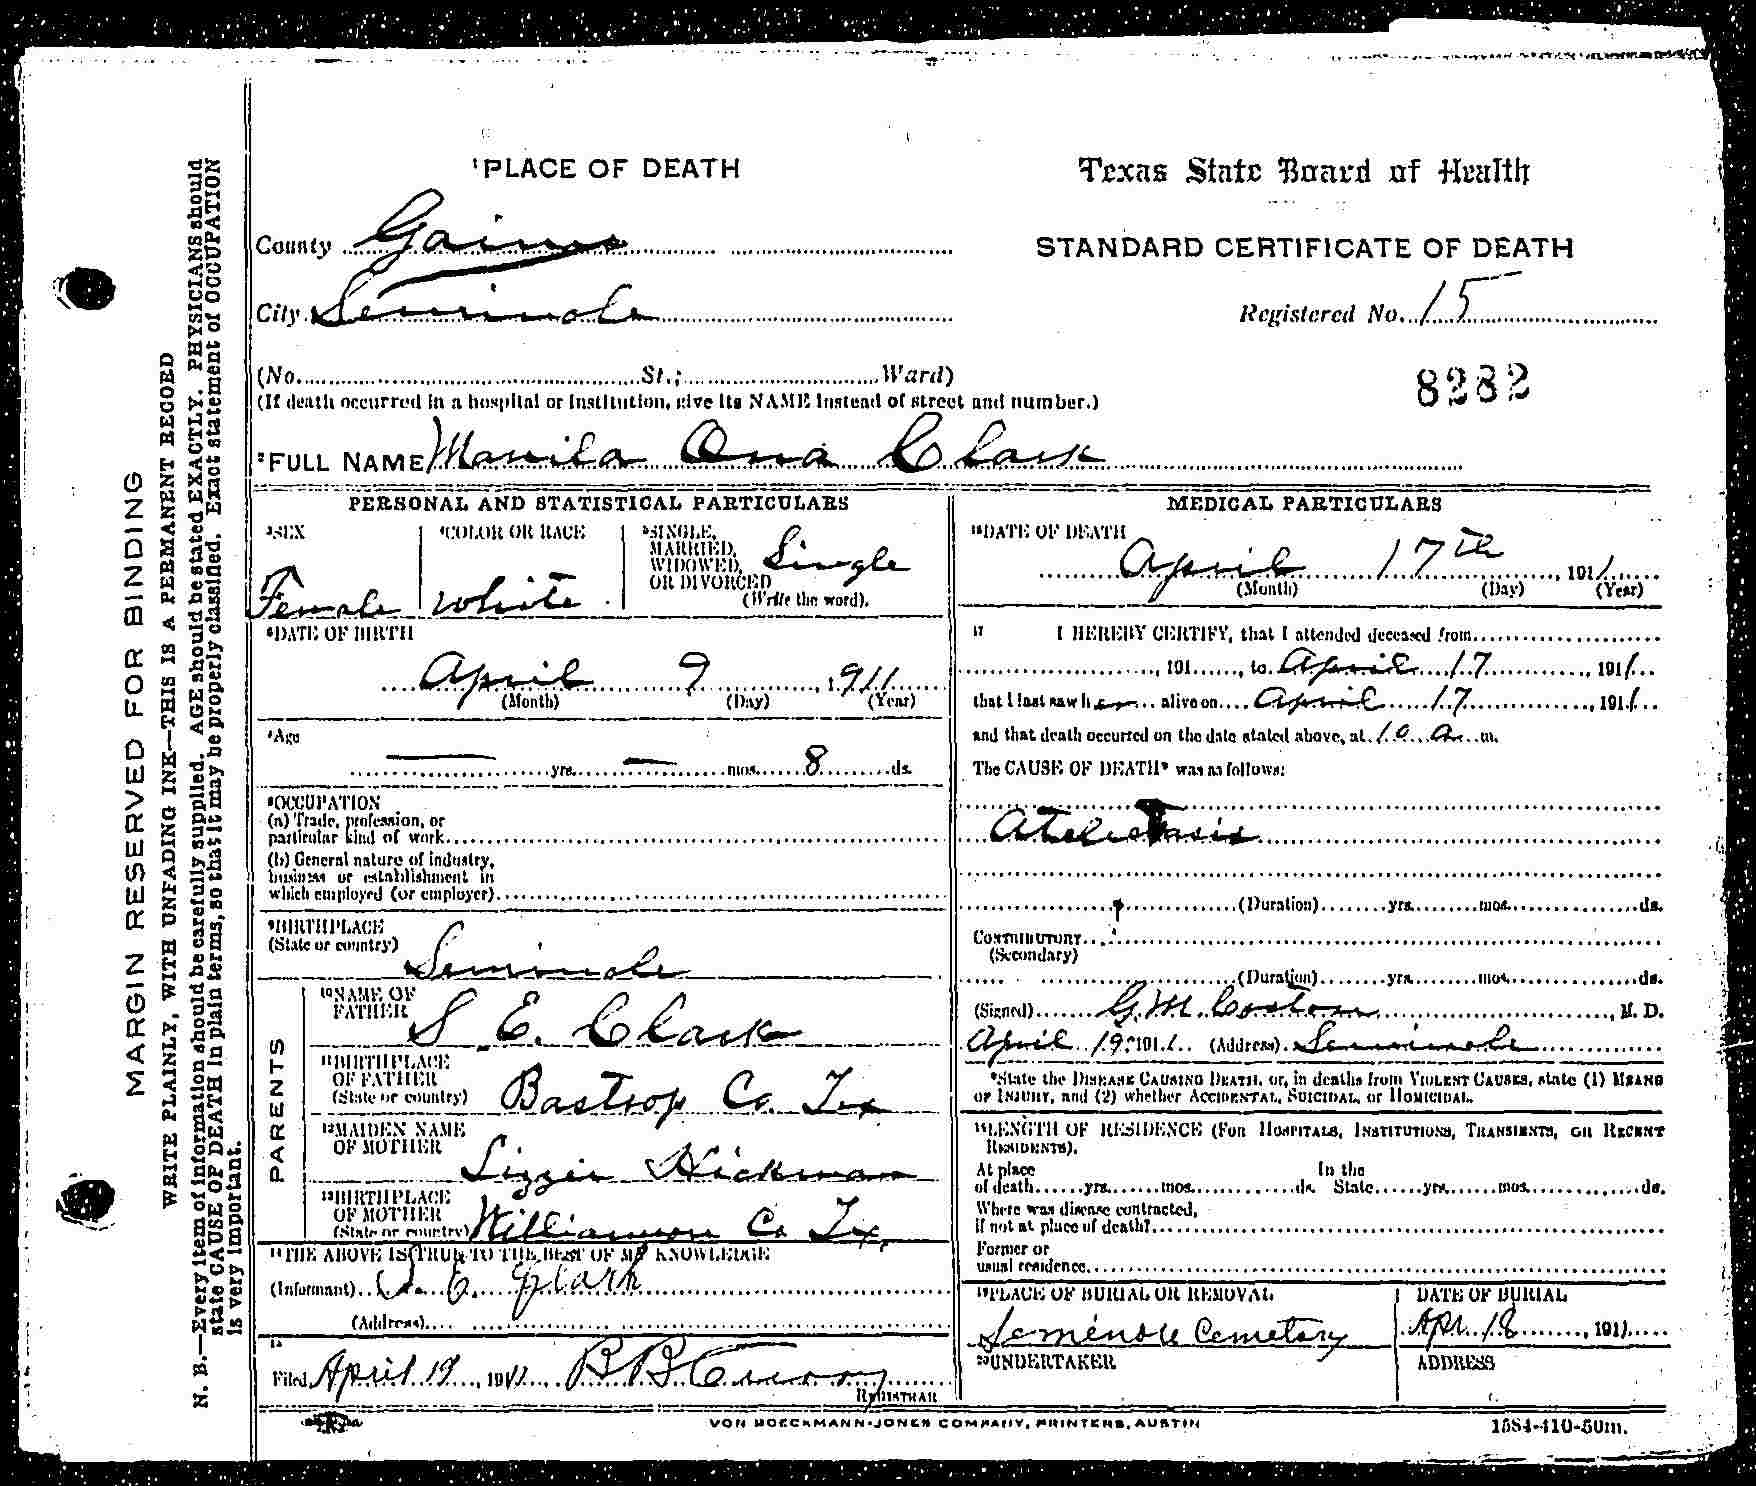 ¹PLACE OF DEATH
Texas State Board of Health
County Gaines
STANDARD CERTIFICATE OF DEATH
City Seminole
Registered No. 15
(No. St.; Ward)
8282
(If death occurred in a hospital or institution, give its NAME instead of street and number.)
²FULL NAME Manila Ona Clark
PERSONAL AND STATISTICAL PARTICULARS
³SEX
Female
⁴COLOR OR RACE
White
⁵SINGLE, MARRIED, WIDOWED, OR DIVORCED Single
(Write the word).
⁶DATE OF BIRTH
April 9, 1911
(Month) (Day) (Year)
⁷Age
— yrs. — mos. 8 ds.
⁸OCCUPATION
(a) Trade, profession, or
particular kind of work
(b) General nature of industry,
business or establishment in
which employed (or employer)
⁹BIRTHPLACE
(State or country)
Seminole
PARENTS
¹⁰NAME OF
FATHER S. E. Clark
¹¹BIRTHPLACE
OF FATHER
(State or country) Bastrop Co. Tex
¹²MAIDEN NAME
OF MOTHER
Lizzie Hickman
¹³BIRTHPLACE
OF MOTHER
(State or country) Williamson Co Tex,
¹⁴THE ABOVE IS TRUE TO THE BEST OF MY KNOWLEDGE
(Informant) S. E. Clark
(Address)
¹⁵
Filed April 19, 1911, B B
REGISTRAR
MEDICAL PARTICULARS
¹⁶DATE OF DEATH
April 17th, 1911
(Month) (Day) (Year)
¹⁷ I HEREBY CERTIFY, that I attended deceased from
, 191 , to April 17, 1911.
that I last saw her alive on April 17, 1911
and that death occurred on the date stated above, at 10 a. m.
The CAUSE OF DEATH* was as follows:
Atelectasis
(Duration) yrs. mos. ds.
CONTRIBUTORY
(Secondary)
(Duration) yrs. mos. ds.
(Signed) G. M. Coston, M. D.
April 19, 1911. (Address) Seminole
*State the DISEASE CAUSING DEATH, or, in deaths from VIOLENT CAUSES, state (1) MEANS
OF INJURY, and (2) whether ACCIDENTAL, SUICIDAL, or HOMICIDAL.
¹⁸LENGTH OF RESIDENCE (FOR HOSPITALS, INSTITUTIONS, TRANSIENTS, OR RECENT
RESIDENTS).
At place In the
of death yrs. mos. ds. State yrs. mos. ds.
Where was disease contracted,
if not at place of death?
Former or
usual residence
¹⁹PLACE OF BURIAL OR REMOVAL
Seminole Cemetery
DATE OF BURIAL
Apr. 18, 1911
²⁰UNDERTAKER
ADDRESS
VON BOECKMANN-JONES COMPANY, PRINTERS, AUSTIN
1584-410-50m.
MARGIN RESERVED FOR BINDING
WRITE PLAINLY, WITH UNFADING INK—THIS IS A PERMANENT RECORD
N. B.—Every item of information should be carefully supplied. AGE should be stated EXACTLY. PHYSICIANS should
state CAUSE OF DEATH in plain terms, so that it may be properly classified. Exact statement of OCCUPATION
is very important.